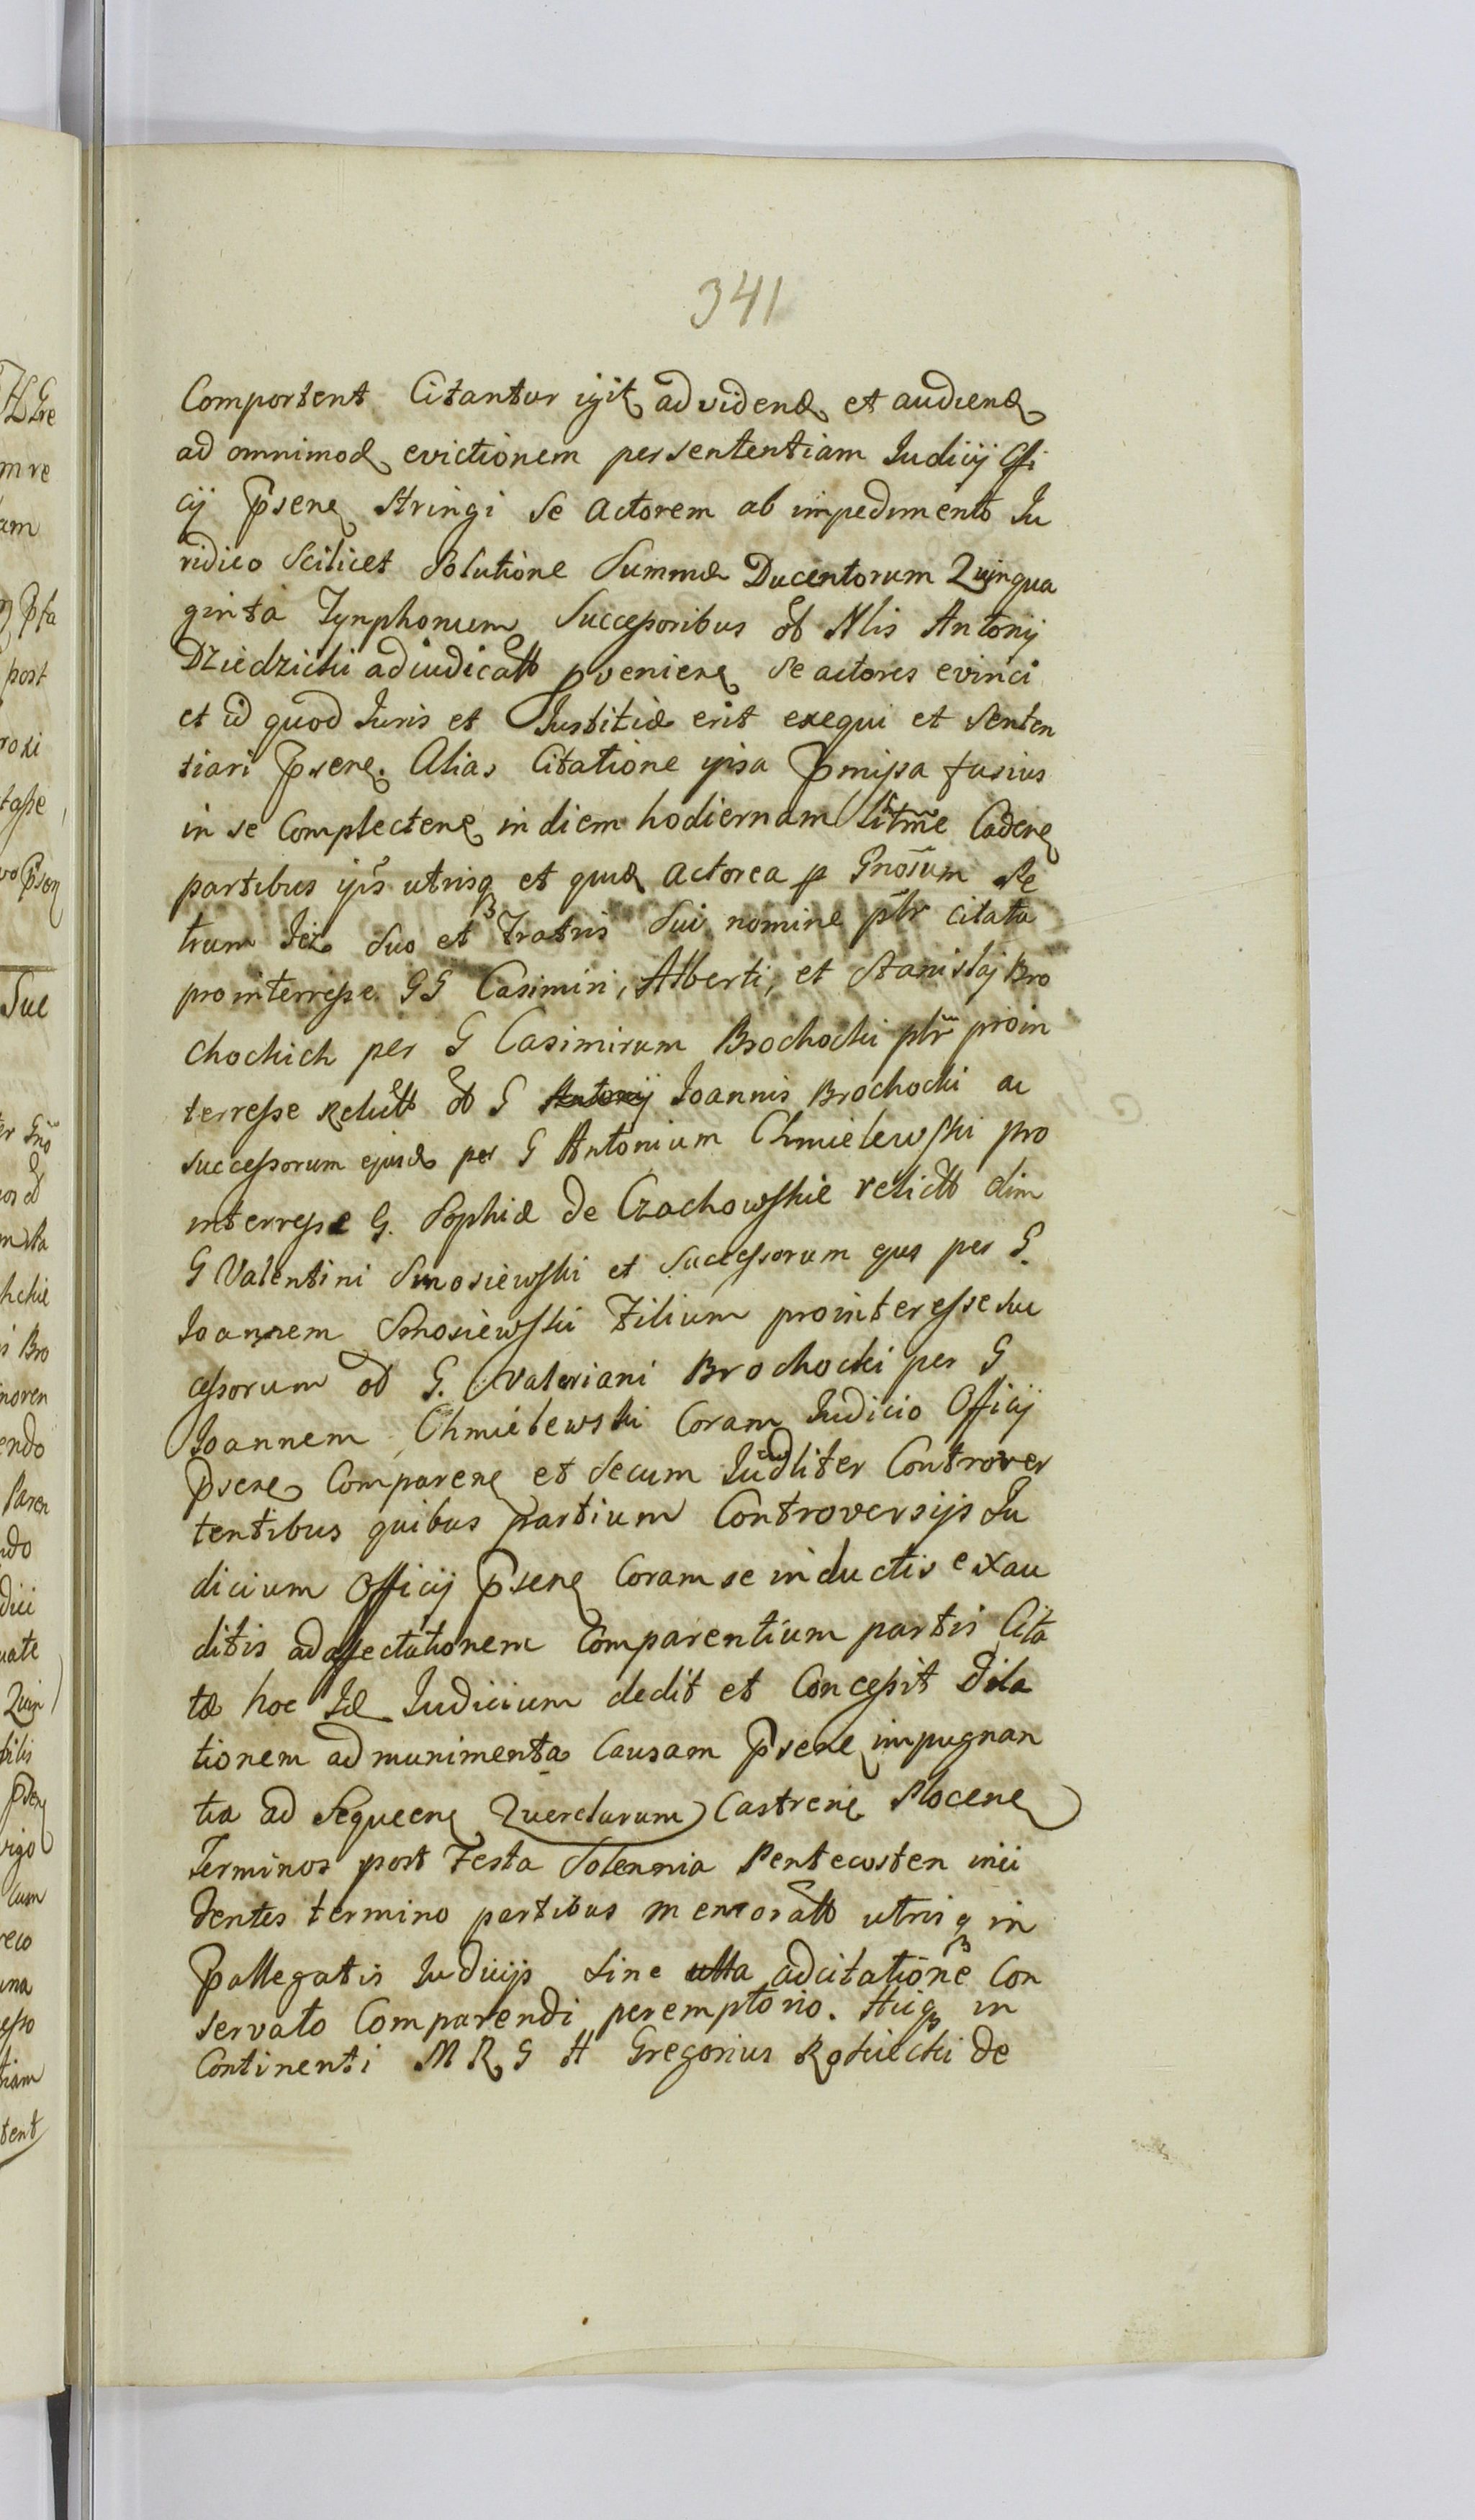 341
Comportent Citantur igit ad vidend et audiend
ad omnimod evictionem per sententiam Iudicij Offi
cij Psen stringi se actorem ab impedimento Iu
ridico Scilicet Solutione Summæ Ducentorum Quinqua
ginta Tynphonum Successoribus od Nlis Antonij
Dziedzicki adiudicatt pvenien se actores evinci
et id quod Iuris et Iustitiæ erit exequi et Senten
tiari Psen. Alias Citatione ipsa Pmissa fusius
in se Complecten in diem hodiernam Caden
partibus ips utrisq et quia actorea p Gnosum Pe
trum suo et Fratris Sui nomine ptr citata
pro interresse GG Casimiri, Alberti, et Stanislaj Bro
chockich per G Casimirum Brochocki ptr proin
terresse Relictt od G Antonij Ioannis Brochocki ac
successorum ejusd per G Antonium Chmielewski pro
interresse G. Sophiæ de Czachowskie relictt olim
G Valentini Smosiewski et Successorum ejus per G.
Ioannem Smosiewski Filium pro interesse suc
cessorum od G. Valeriani Brochocki per G
Ioannem Chmielewski Coram Iudicio Officij
Psen Comparen et secum Iudliter Controver
tentibus quibus partium Controversijs Iu
dicium Officij Psen Coram se inductis exau
ditis ad affectationem Comparentium partis Cita
tæ hoc Id Iudicium dedit et Concessit Dila
tionem ad munimenta Causam Psen impugnan
tia ad Sequeen Querelarum Castren Plocen
Terminos post Festa Solennia Pentecosten inci
dentes termino partibus memoratt utrisq in
Pallegatis Iudicijs sine ulla adcitatione Con
servato Comparendi peremptorio. Hicq in
Continenti M R G H Gregorius Rościecki de